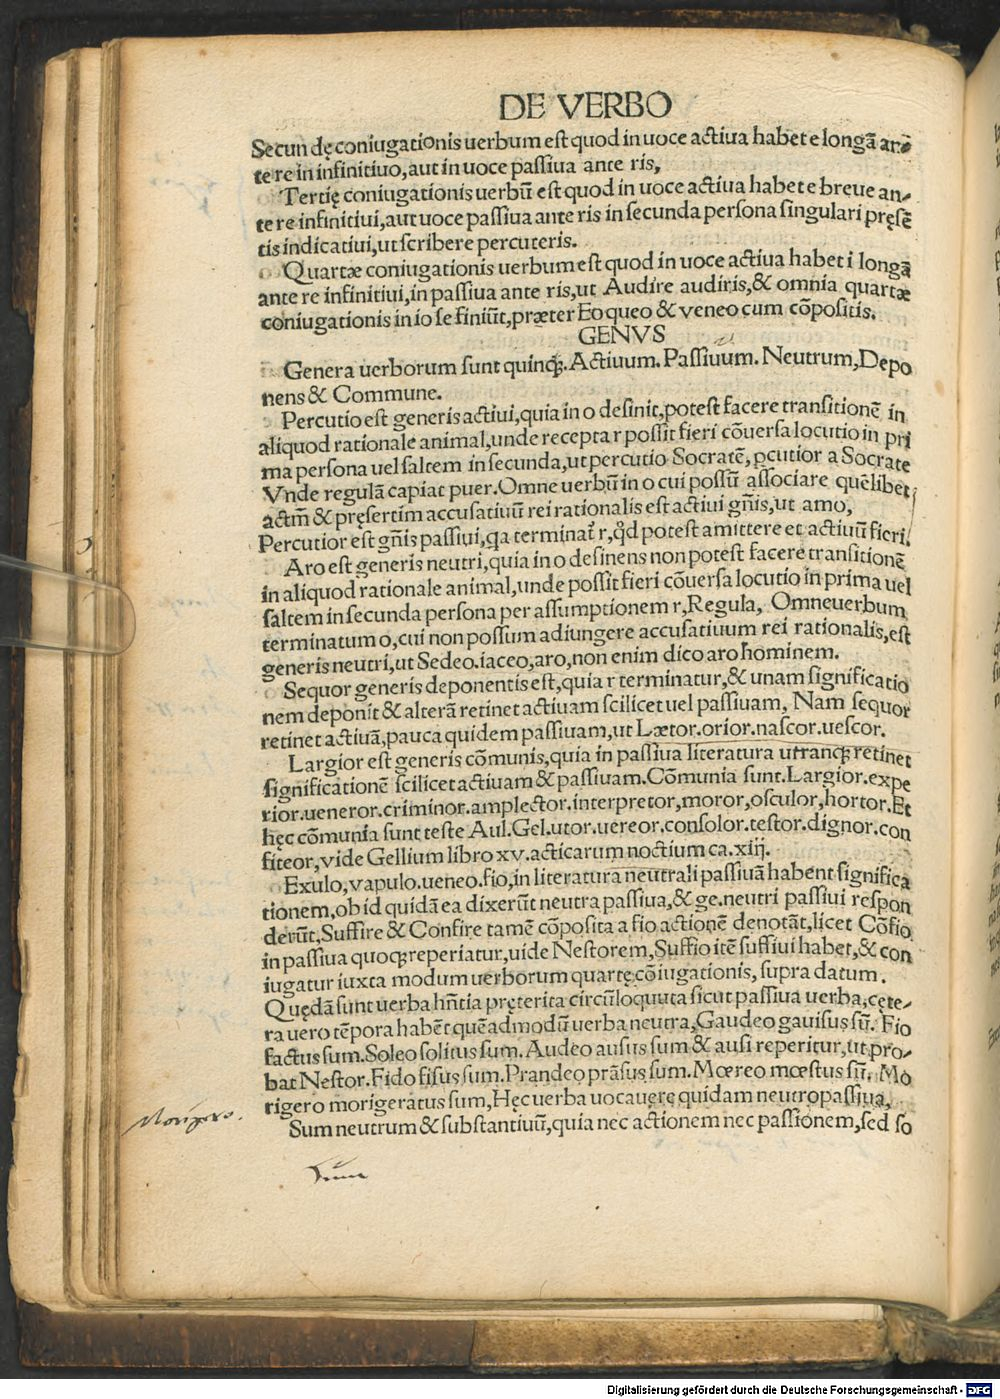 DE VERBO
Secundę coniugationis uerbum est quod in uoce actiua habet e longã an-
te re in infinitiuo, aut in uoce passiua ante ris,
Tertię coniugationis uerbũ est quod in uoce actiua habet e breue an-
te re infinitiui, aut uoce passiua ante ris in secunda persona singulari pręsẽ
tis indicatiui, ut scribere percuteris.
Quartæ coniugationis uerbum est quod in uoce actiua habet i longã
ante re infinitiui, in passiua ante ris, ut Audire audiris, & omnia quartæ
coniugationis in io se finiũt, præter Eo queo & veneo cum cõpositis.
GENVS
Genera uerborum sunt quinq;. Actiuum. Passiuum. Neutrum, Depo
nens & Commune.
Percutio est generis actiui, quia in o desinit, potest facere transitionẽ in
aliquod rationale animal, unde recepta r possit fieri cõuersa locutio in pri
ma persona uel saltem in secunda, ut percutio Socratẽ, ꝑcutior a Socrate
Vnde regulã capiat puer. Omne uerbũ in o cui possũ associare quẽlibet
actm̃ & pręsertim accusatiuũ rei rationalis est actiui gñis, ut amo,
Percutior est gñis passiui, qa terminat᷑ r, qd̓ potest amittere et actiuũ fieri.
Aro est generis neutri, quia in o desinens non potest facere transitionẽ
in aliquod rationale animal, unde possit fieri cõuersa locutio in prima uel
saltem in secunda persona per assumptionem r, Regula, Omne uerbum
terminatum o, cui non possum adiungere accusatiuum rei rationalis, est
generis neutri, ut Sedeo. iaceo, aro, non enim dico aro hominem.
Sequor generis deponentis est, quia r terminatur, & unam significatio
nem deponit & alterã retinet actiuam scilicet uel passiuam, Nam sequor
retinet actiuã, pauca quidem passiuam, ut Lætor. orior. nascor. uescor.
Largior est generis cõmunis, quia in passiua literatura utranq; retinet
significationẽ scilicet actiuam & passiuam. Cõmunia sunt. Largior. expe
rior. ueneror. criminor. amplector. interpretor, moror, osculor, hortor. Et
hęc cõmunia sunt teste Aul. Gel. utor. uereor. consolor. testor. dignor. con
fiteor, vide Gellium libro xv. acticarum noctium ca. xiij.
Exulo, vapulo. ueneo. fio, in literatura neutrali passiuã habent significa
tionem, ob id quidã ea dixerũt neutra passiua, & ge. neutri passiui respon
derũt, Suffire & Confire tamẽ cõposita a fio actionẽ denotãt, licet Cõfio
in passiua quoq; reperiatur, uide Nestorem, Suffio itẽ suffiui habet, & con
iugatur iuxta modum uerborum quartę cõiugationis, supra datum.
Quędã sunt uerba hñtia pręterita circũloquuta sicut passiua uerba, cęte-
ra uero tẽpora habẽt quẽadmodũ uerba neutra, Gaudeo gauisus sũ. Fio
factus sum. Soleo solitus sum. Audeo ausus sum & ausi reperitur, ut pro-
bat Nestor. Fido fisus sum. Prandeo prãsus sum. Mœreo mœstus sũ. Mo
rigero morigeratus sum, Hęc uerba uocauere quidam neutropassiua,
Morigero.
Sum neutrum & substantiuũ, quia nec actionem nec passionem, sed so
Sum
Digitalisierung gefördert durch die Deutsche Forschungsgemeinschaft - DFG